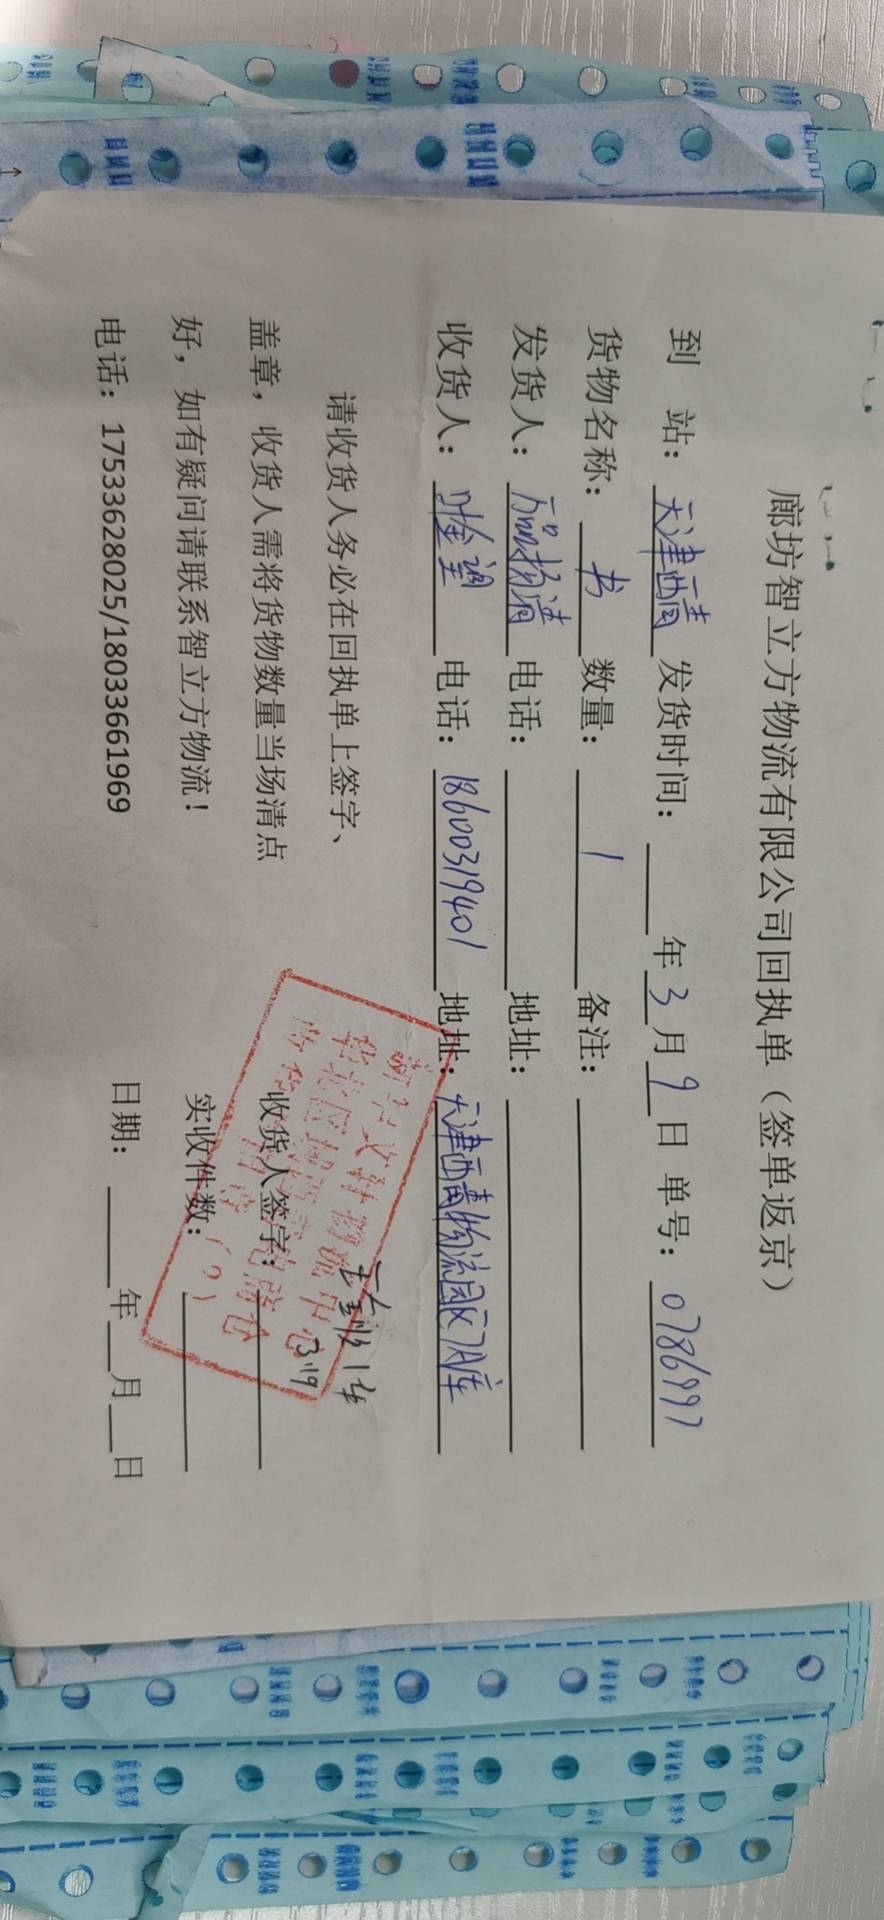 廊坊智立方物流有限公司回执单（签单返京）
到 站：天津西青 发货时间： 年3月9日 单号：0786997
货物名称：书 数量：1 备注：
发货人： 电话： 地址：
收货人： 电话：18600319401 地址：天津西青物流园区7A库
请收货人务必在回执单上签字、
盖章，收货人需将货物数量当场清点
好，如有疑问请联系智立方物流！
电话：17533628025/18033661969
新华文轩物流中心
收货人签字： 3.19
实收件数：
日期： 年 月 日